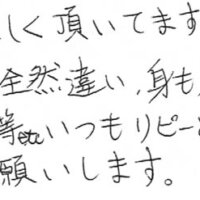 しく頂いてます
全然違い、身も
等etcいつもリピー
願いします。